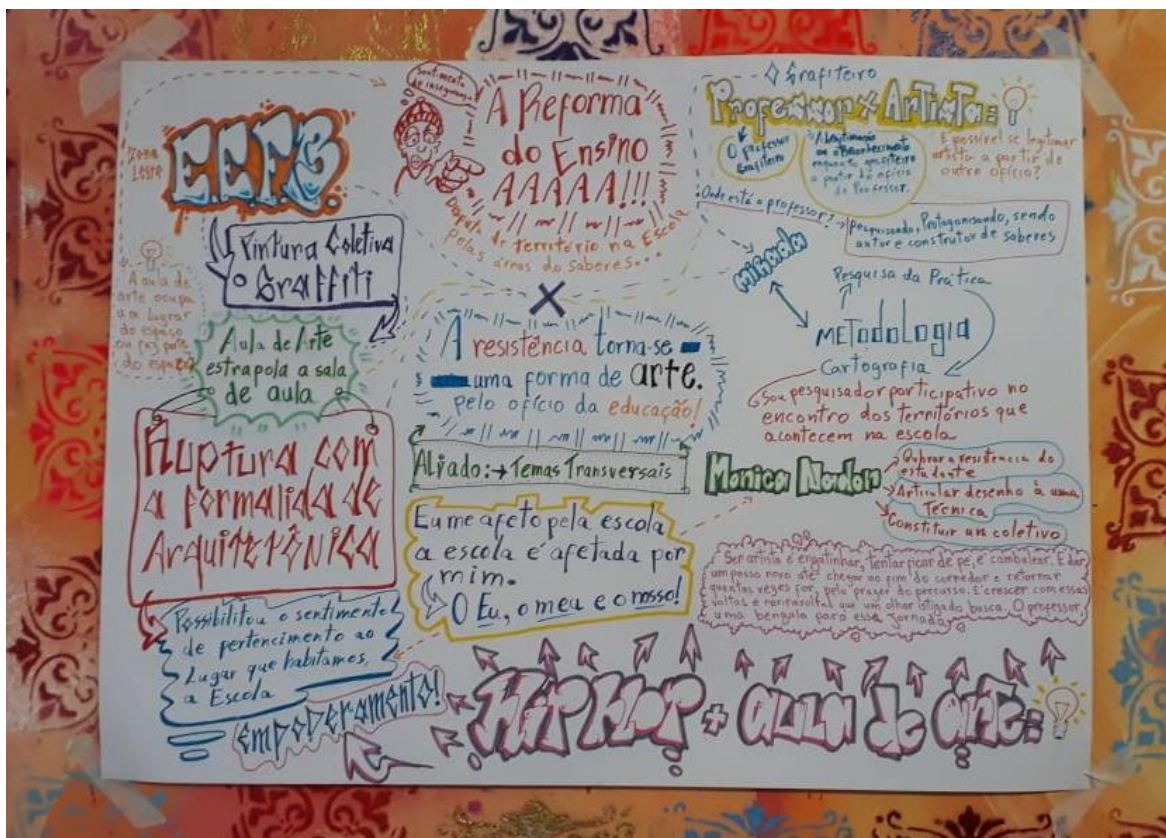 Zona
Leste
E.E.F.S.
Pintura Coletiva
o Graffiti
A aula de
arte ocupa
um
do espaço
ou faz parte
do espaço?
Aula de Arte
estrapola a sala
de aula
Ruptura com
a formalidade
Arquitetônica
Possibilitou o sentimento
de pertencimento ao
Lugar que habitamos,
a Escola
EMPODERAMENTO!
Sentimento
de insegurança
A Reforma
do Ensino
AAAAA!!!
Disputa de território na Escola
pelas áreas do saberes...
X
A resistência torna-se
uma forma de arte.
pelo ofício da educação!
Aliado:→ Temas Transversais
Eu me afeto pela escola
a escola é afetada por
mim.
O Eu, o meu e o nosso!
O Grafiteiro
Professor x Artista:
O professor
Grafiteiro
A Legitimação
e o Reconhecimento
enquanto grafiteiro
a partir do ofício
de Professor.
É possível se legitimar
artista a partir de
outro ofício?
Onde está o professor? →
Pesquisando, Protagonisando, sendo
autor e construtor de saberes
Mirada
Pesquisa da Prática
METODOLOGIA
Cartografia
Sou pesquisador participativo no
encontro dos territórios que
acontecem na escola
Monica Nador
Quebrar a resistência do
estudante
Articular desenho à uma
Técnica
Constituir um coletivo
Ser artista é engatinhar, tentar ficar de pé, e cambalear. É dar
um passo novo até chegar ao fim do corredor e retornar
quantas vezes for, pelo prazer do percurso. É crescer com essas
voltas e reviravoltas que um olhar istigado busca. O professor,
uma bengala para essa jornada.
HIP HOP + aula de arte=